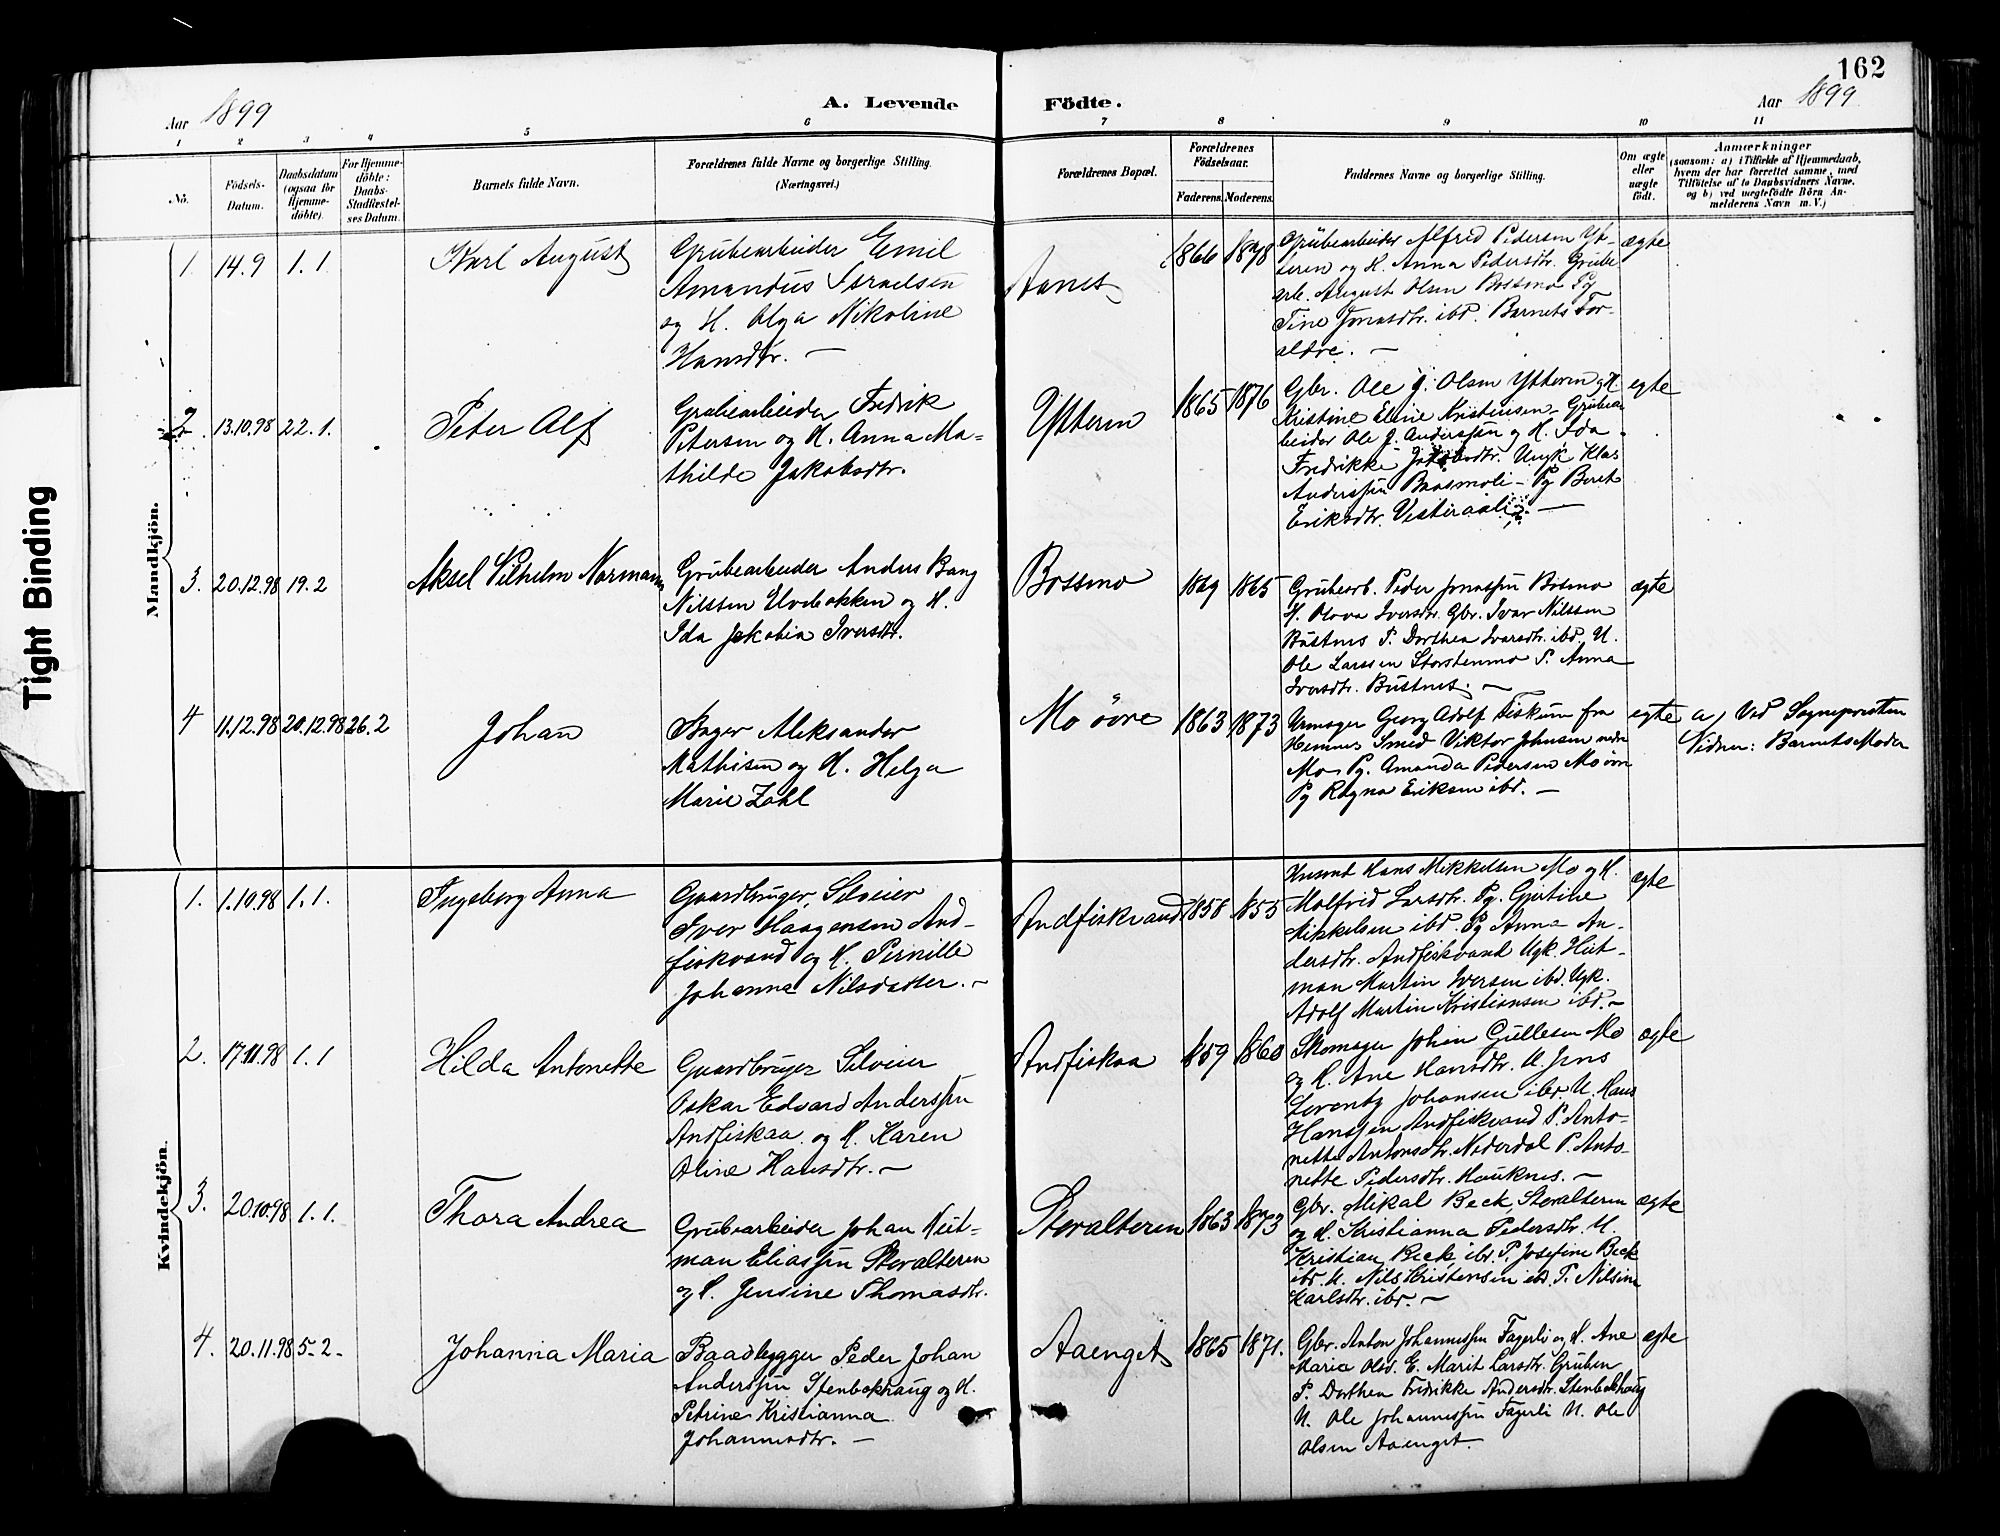 162
Aar 1899
A. Levende
Födte.
Aar 1899
1 2 3 4 5 6 7 8 9 10 11
Nö.
Födsels-
Datum.
Daabsdatum
(ogsaa for
Hjemme-
döbte).
For Hjemme-
döbte:
Daabs-
Stadfæstel-
ses Datum.
Barnets fulde Navn.
Forældrenes fulde Navne og borgerlige Stilling.
(Næringsvei.)
Forældrenes Bopæl.
Forældrenes
Födselsaar.
Faderens. Moderens.
Faddernes Navne og borgerlige Stilling.
Om ægte
eller
uægte
födt.
Anmærkninger
(saasom: a) i Tilfælde af Hjemmedaab,
hvem der har forrettet samme, med
Tilföielse af to Daabsvidners Navne.
og b) ved uægtefödte Börn An-
melderens Navn m. V.)
Tight Binding
Mandkjön.
1. 14.9 1.1
Karl August
Grubearbeider Emil
Amandus Israelsen
og H. Olga Nikoline
Hansdtr. —
Aanes
1866 1878
Grubearbeider Alfred Pedersen Yt-
teren og H. Anna Pedersdtr. Grube
arb. August Olsen Bossmo Pg
Tine Jonasdtr. ibd. Barnets For-
ældre. —
ægte
2. 13.10.98 22.1.
Peter Alf
Grubearbeider Fredrik
Petersen og H. Anna Ma-
thilde Jakobsdtr.
Ytteren
1865 1876
Gbr. Ole J. Olsen Ytteren og H.
Kristine Eline Kristensen – Grubear
beider Ole J. Anderssen og H. Ida
Fredrikke Jakobsdtr. Ungk Klas
Anderssen Baasmoli – Pg Beret
Eriksdtr. —
egte
3. 20.12.98 19.2
Aksel Vilhelm Normann
Grubearbeider Anders Bang
Nilssen Elvebakken og H.
Ida Jakobia Iversdtr.
Bossmo
1869 1865
Grubearb. Peder Jonassen Bosmo
H. Olova Iversdtr. Gbr. Ivar Nilssen
Båstnes P. Dorthea Ivarsdtr. ibd. U.
Ole Larssen Storstenmo P. Anna
Iversdtr. Bustnes. —
ægte
4 11.12.98 20.12.98 26.2
Johan
Bager Aleksander
Mathisen og H. Helga
Marie Zahl
Mo övre
1863 1873
Urmager Georg Adolf Fiskum fra
Hemnes Smed Viktor Johnsen nedre
Mo. Pg. Amanda Pedersen Mo övre
Pg Ragna Eriksen ibd. —
egte
a) Ved Sognepresten
Vidner: Barnets Moder
Kvindekjön.
1. 1.10.98 1.1.
Ingeborg Anna
Gaardbruger, Selveier
Iver Haagensen And-
fiskvand og H. Pernille
Johanna Nilsdatter. —
Andfiskvand
1858 1855
Husmt Hans Mikkelsen Mo og H.
Molfrid Larsdtr. Pg. Gjertine
Mikkelsen ibd. Pg Anna An-
dersdtr. Andfiskvand Ugk. Heit-
man Martin Iversen ibd. Ugk.
Adolf Martin Kristiansen ibd. —
ægte
2. 17.11.98 1.1
Hilda Antonette
Gaardbruger Selveier
Oskar Edvard Anderssen
Andfiskaa og H. Karen
Oline Hansdtr. —
Andfiskaa
1859 1860
Skomager Johan Gullesen Mo
og H. Ane Hansdtr. U. Jens
Lorents Johansen ibd. U. Hans
Hanssen Andfiskvand P. Anto-
nette Antonsdtr. Nederdal P. Anto-
nette Pedersdtr. Hauknes. —
ægte
3. 20.10.98 1.1.
Thora Andrea
Grubearbeider Johan Heit-
man Eliassen Storalteren
og H. Jensine Thomasdtr.
Storalteren
1863 1873
Gbr. Mikal Beck, Storalteren
og H. Kristianna Pedersdtr. U.
Kristian Beck ibd. P. Josefine Beck
ibd. U. Nils Kristensen ibd. P. Nilsine
Karlsdtr. ibd. —
ægte
4. 20.11.98 5-2-
Johanna Maria
Baadbygger Peder Johan
Anderssen Stenbekhaug og H.
Petrine Kristianna
Johannesdtr. —
Aaenget
1865 1871.
Gbr. Anton Johannessen Fagerli og H. Ane
Maria Olsd. E. Marit Larsdtr. Gruben
P. Dorthea Fredrikke Andersdtr. Stenbekhaug
U. Ole Johannessen Fagerli U. Ole
Olsen Aaenget.
ægte